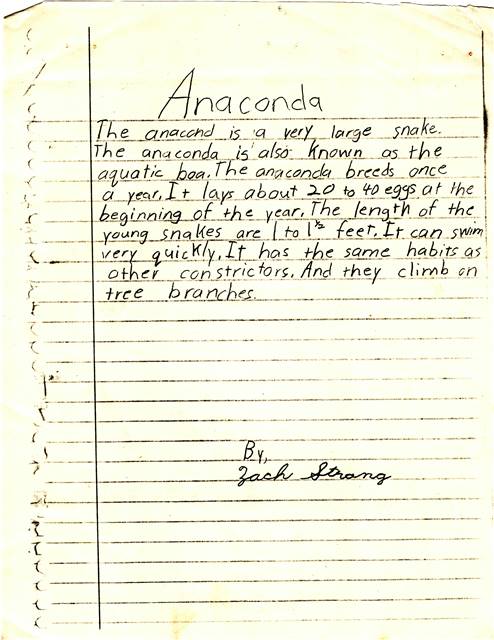 Anaconda
The anacond is a very large snake.
The anaconda is also known as the
aquatic boa. The anaconda breeds once
a year. It lays about 20 to 40 eggs at the
beginning of the year. The length of the
young snakes are 1 to 1½ feet. It can swim
very quickly. It has the same habits as
other constrictors. And they climb on
tree branches.
By,
Zach Strong